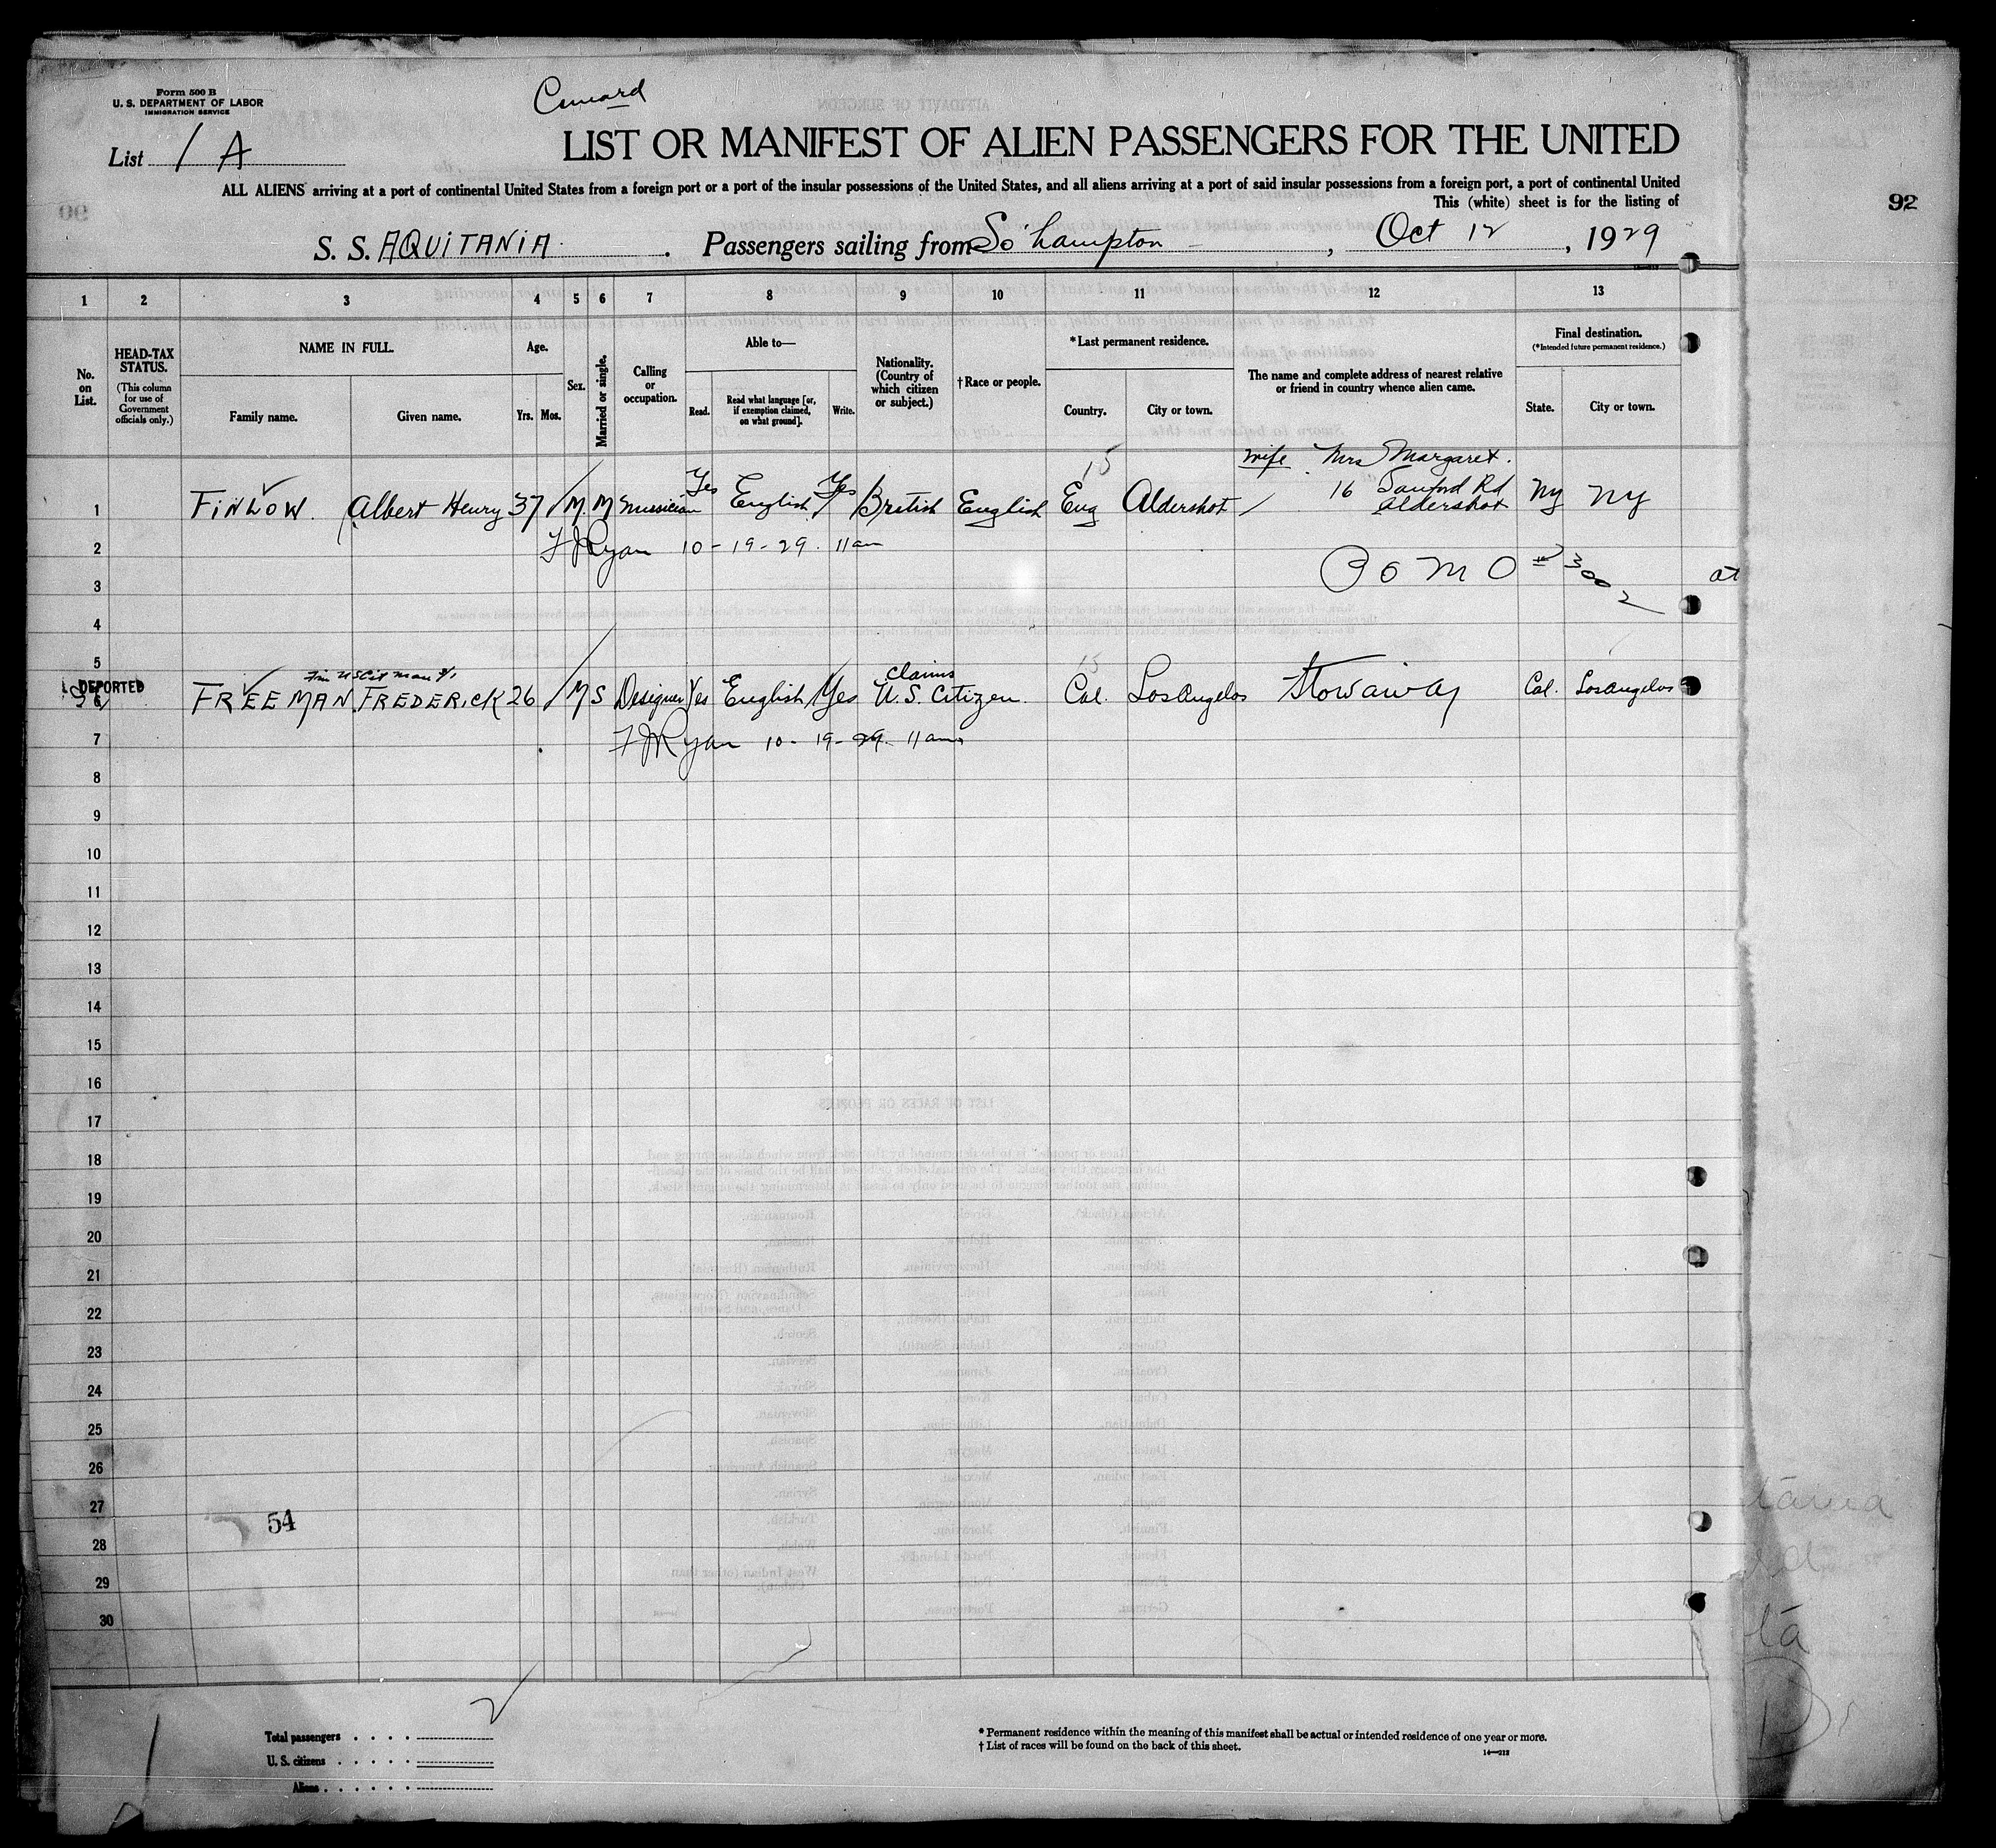 Form 500 B
U. S. DEPARTMENT OF LABOR
IMMIGRATION SERVICE
Cunard
List 1 A
LIST OR MANIFEST OF ALIEN PASSENGERS FOR THE UNITED
ALL ALIENS arriving at a port of continental United States from a foreign port or a port of the insular possessions of the United States, and all aliens arriving at a port of said insular possessions from a foreign port, a port of continental United
This (white) sheet is for the listing of
92
S. S. AQUITANIA. Passengers sailing from So'hampton, Oct 12, 1929
1 2 3 4 5 6 7 8 9 10 11 12 13
No. on List.
HEAD-TAX STATUS.
(This column for use of Government officials only.)
NAME IN FULL.
Family name. Given name.
Age.
Yrs. Mos.
Sex.
Married or single.
Calling or occupation.
Able to—
Read. Read what language [or, if exemption claimed, on what ground]. Write.
Nationality. (Country of which citizen or subject.)
†Race or people.
*Last permanent residence.
Country. City or town.
The name and complete address of nearest relative or friend in country whence alien came.
Final destination.
(*Intended future permanent residence.)
State. City or town.
15 wife Mrs Margaret.
1 FINLOW. Albert Henry 37 M. M Musician Yes English Yes British English Eng Aldershot 16 Sanford Rd Aldershot Ny Ny
2 F J Ryan 10-19-29. 11am
3 at
4
5 15
DEPORTED FREEMAN FREDERICK 26 M S Designer Yes English Yes claims U.S. Citizen. Cal. Los Angelos Stowaway Cal. Los Angelos
7 F J Ryan 10-19-29. 11am
8
9
10
11
12
13
14
15
16
17
18
19
20
21
22
23
24
25
26
27
54
28
29
30
Total passengers
U. S. citizens
Aliens
* Permanent residence within the meaning of this manifest shall be actual or intended residence of one year or more.
† List of races will be found on the back of this sheet.